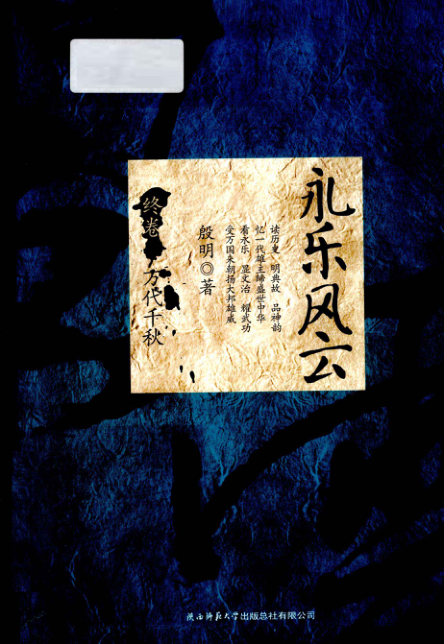 永乐风云
读历史 明典故 品神韵
忆一代雄主缔盛世中华
看永乐 显文治 耀武功
受万国来朝扬大邦雄威
殷明◎著
终卷
万代千秋
陕西师范大学出版总社有限公司